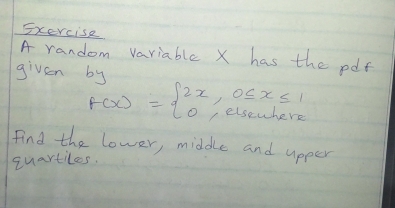 Exercise
A random variable X has the pdf
given by
f(x) = {2x, 0≤x≤1
0, elsewhere
Find the lower, middle and upper
quartiles.